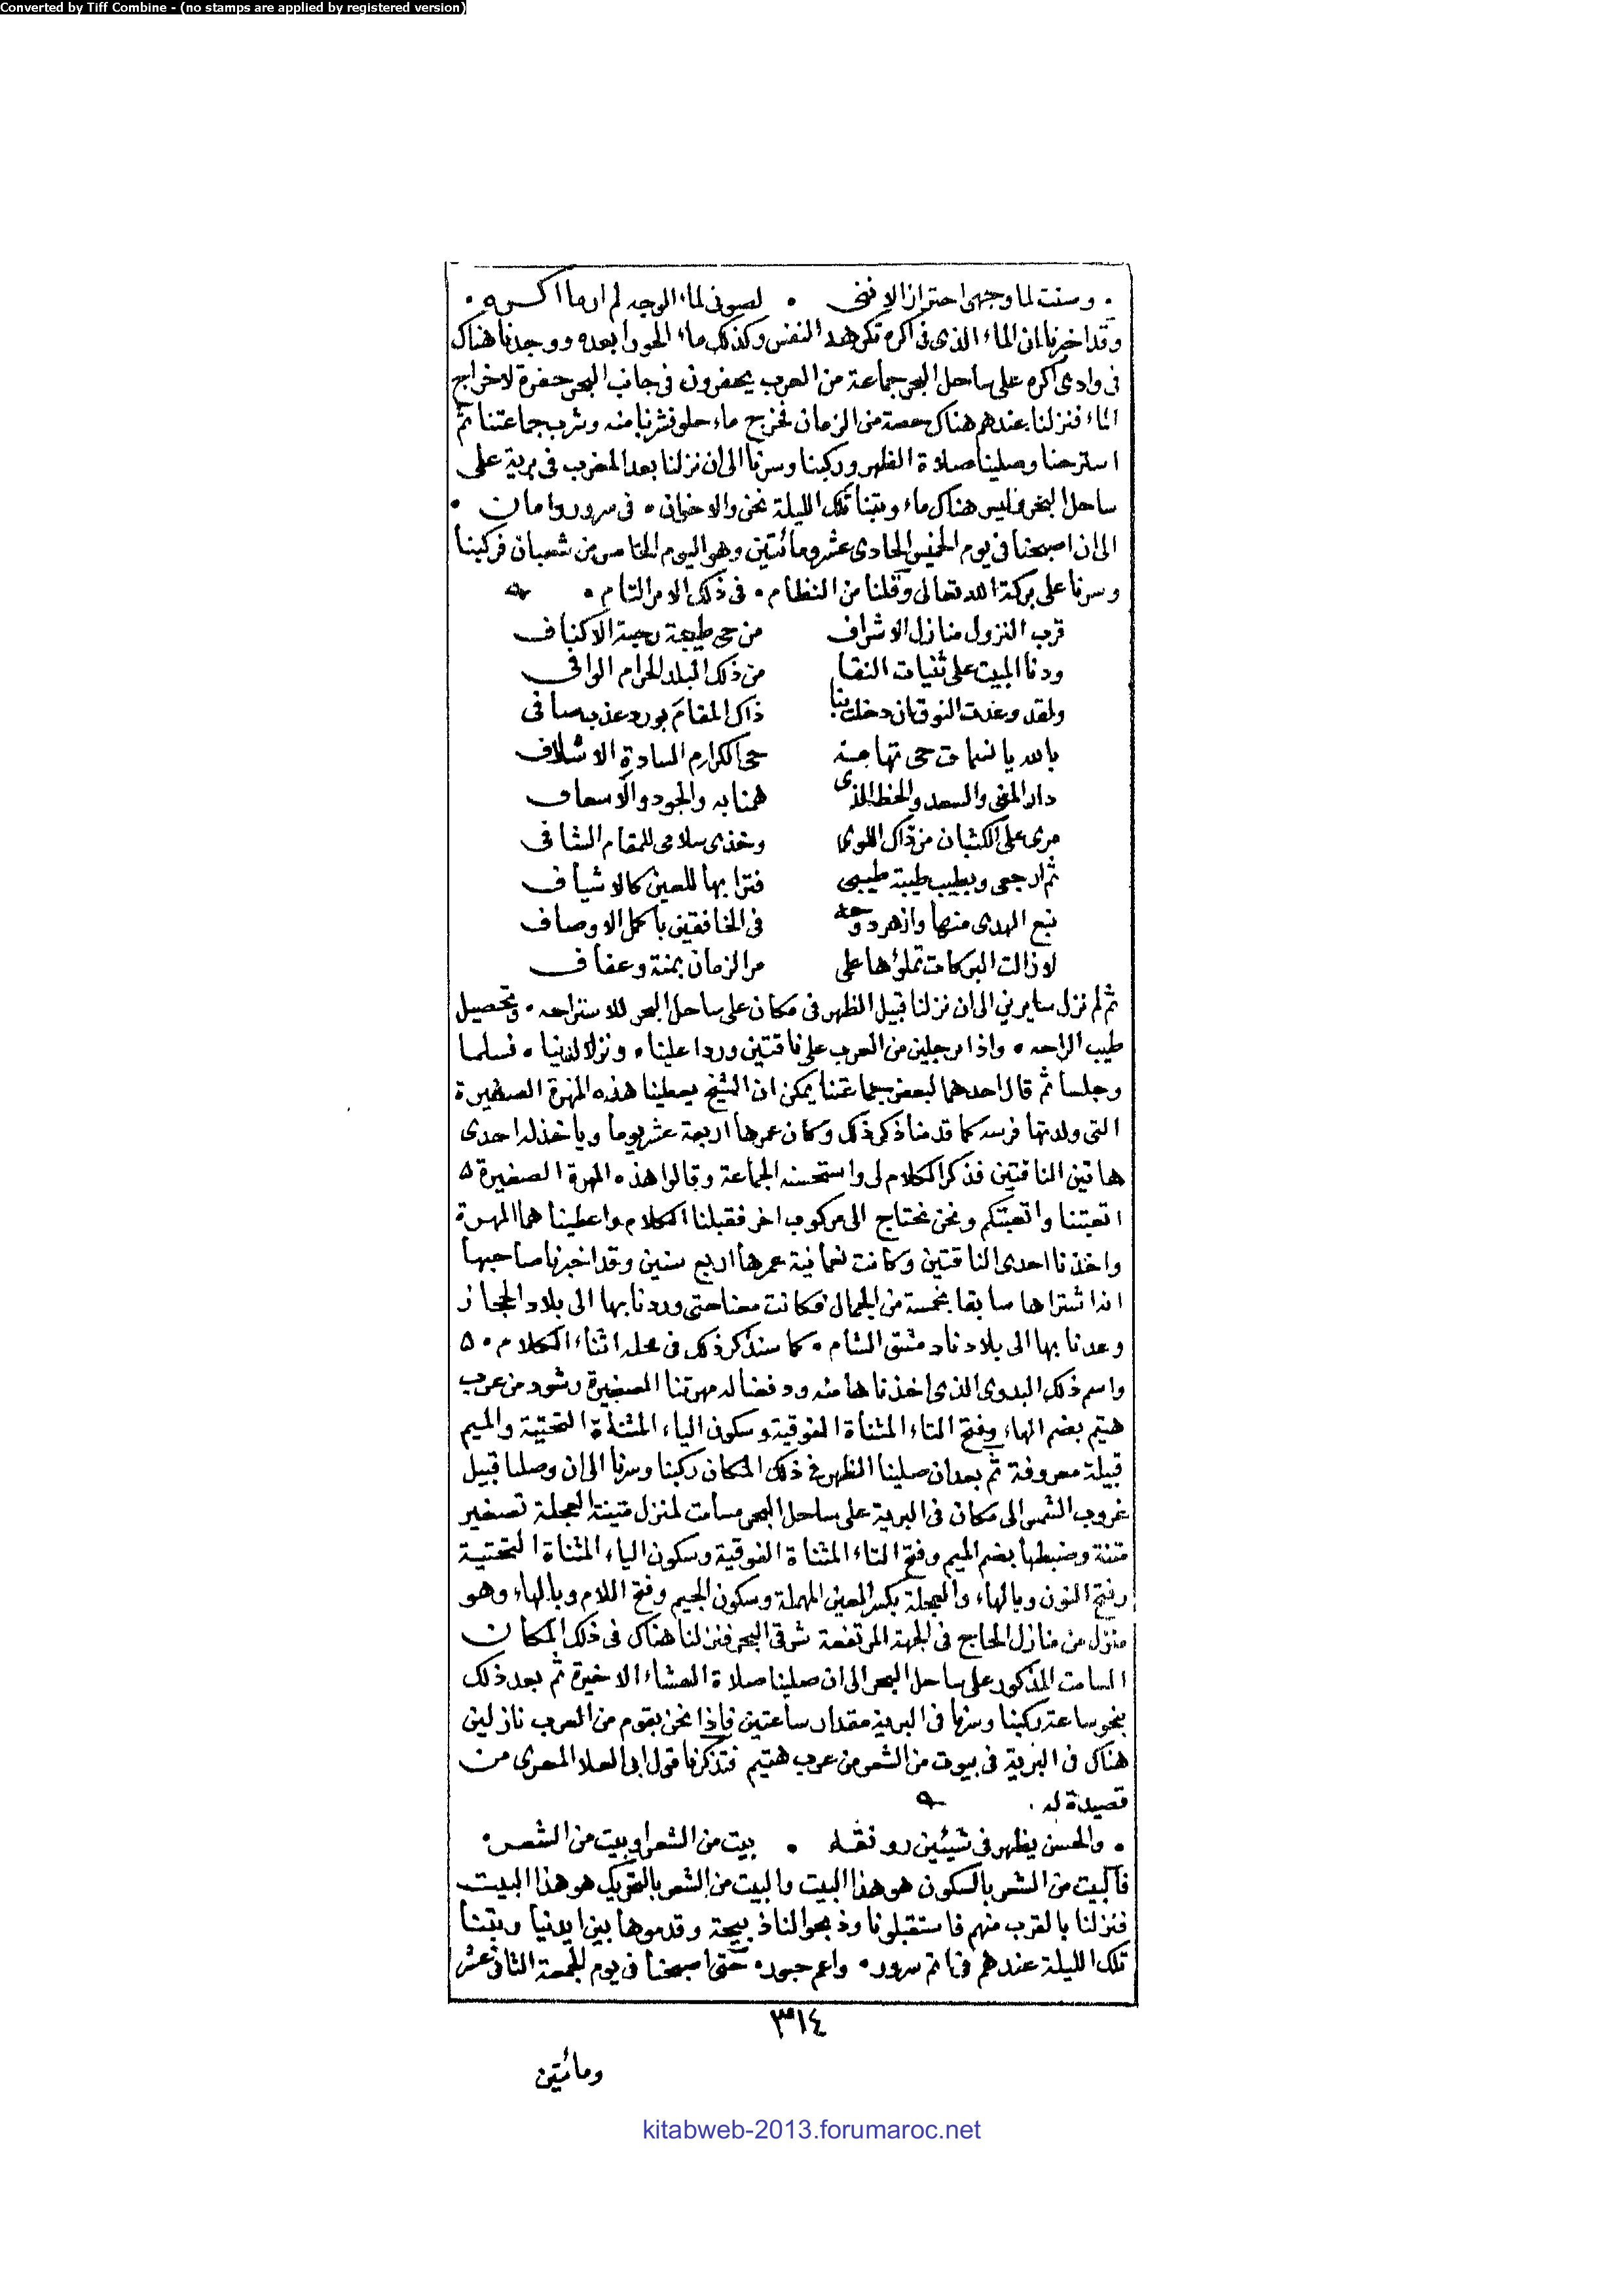 Converted by Tiff Combine - (no stamps are applied by registered version)
• وسنت لما وجهى احترازا لانى • لصونى لماء الوجه لم ار ما اكره •
وقد اخبرنا ان الماء الذى فى اكره تكرهه النفس وكذلك ماء الحورا بعده ووجدنا هناك
فى وادى اكره على ساحل البحر جماعة من العرب يحفرون فى جانب البحر حفرة لاخراج
الماء فنزلنا عندهم هناك حصة من الزمان فخرج ماء حلو فشربنا منه وشرب جماعتنا ثم
استرحنا وصلينا صلاة الظهر وركبنا وسرنا الى ان نزلنا بعد المغرب فى برية على
ساحل البحر وليس هناك ماء وبتنا تلك الليلة نحن والاخوان • فى سرور وامان •
الى ان اصبحنا فى يوم الخميس الحادى عشر ومائتين وهو اليوم الخامس من شعبان فركبنا
وسرنا على بركة الله تعالى وقلنا من النظام • فى ذلك الامر التام •
قرب النزول منازل الاشراف من حى طيبة رحبة الاكناف
ودنا المبيت على ثنيات النقا من ذلك البلد الحرام الوافى
ولقد وعدت النوق ان دخلت بنا ذاك المقام بورد عذب صافى
بالله يا نسمات حى تهامة حى الكرام السادة الاشلاف
دار المنى والسعد والحظ الذى همنا به والجود والاسعاف
مرى على الكثبان من ذاك اللوى وخذى سلامى للمقام الشافى
ثم ارجعى وبطيب طيبة طيبى فترابها للعين كالاشياف
نبع الهدى منها وازهر دوحه فى الخافقين باكمل الاوصاف
لا زالت البركات تملؤها على مر الزمان بمنة وعفاف
ثم لم نزل سايرين الى ان نزلنا قبيل الظهر فى مكان على ساحل البحر للاستراحه • وتحصيل
طيب الراحه • واذا برجلين من العرب على ناقتين وردا علينا • ونزلا لدينا • فسلما
وجلسا ثم قال احدهما لبعض جماعتنا يمكن ان الشيخ يعطينا هذه المهرة الصغيرة
التى ولدتها فرسه كما قدمنا ذكر ذلك وكان عمرها اربعة عشر يوما وياخذ له احدى
هاتين الناقتين فذكر الكلام لى واستحسنه الجماعة وقالوا هذه المهرة الصغيرة ه
اتعبتنا واتعبتكم ونحن نحتاج الى مركوب اخر فقبلنا الكلام واعطيناهما المهرة
واخذنا احدى الناقتين وكانت نعمانية عمرها اربع سنين وقد اخبرنا صاحبها
انه اشتراها سابقا بخمسة من الجمال فكانت معنا حتى وردنا بها الى بلاد الحجاز
وعدنا بها الى بلادنا دمشق الشام • كما سنذكر ذلك فى محله اثناء الكلام • ه
واسم ذلك البدوى الذى اخذناها منه ودفعنا له مهرتنا الصغيرة رشود من عرب
هتيم بضم الهاء وفتح التاء المثناة الفوقية وسكون الياء المثناة التحتية والميم
قبيلة معروفة ثم بعد ان صلينا الظهر فى ذلك المكان ركبنا وسرنا الى ان وصلنا قبيل
غروب الشمس الى مكان فى البرية على ساحل البحر مسامت لمنزل متينة العجلة تصغير
متنة وضبطها بضم الميم وفتح التاء المثناة الفوقية وسكون الياء المثناة التحتية
وفتح النون وبالهاء والعجلة بكسر العين المهملة وسكون الجيم وفتح اللام وبالهاء وهو
منزل من منازل الحاج فى الجهة المرتفعة شرقى البحر فنزلنا هناك فى ذلك المكان
المسامت المذكور على ساحل البحر الى ان صلينا صلاة العشاء الاخيرة ثم بعد ذلك
بنحو ساعة ركبنا وسرنا فى البرية مقدار ساعتين فاذا نحن بقوم من العرب نازلين
هناك فى البرية فى بيوت من الشعر من عرب هتيم فتذكرنا قول ابى العلا المعرى من
قصيدة له •
• والحسن يظهر فى شيئين رونقه • بيت من الشعر او بيت من الشعر •
فالبيت من الشعر بالسكون هو هذا البيت والبيت من الشعر بالتحريك هو هذا البيت
فنزلنا بالقرب منهم فاستقبلونا وذبحوا لنا ذبيحة وقدموها بين ايدينا وبتنا
تلك الليلة عندهم فى اتم سرور • واعم حبور • حتى اصبحنا فى يوم الجمعة الثانى عشر
٣١٤
ومائتين
kitabweb-2013.forumaroc.net